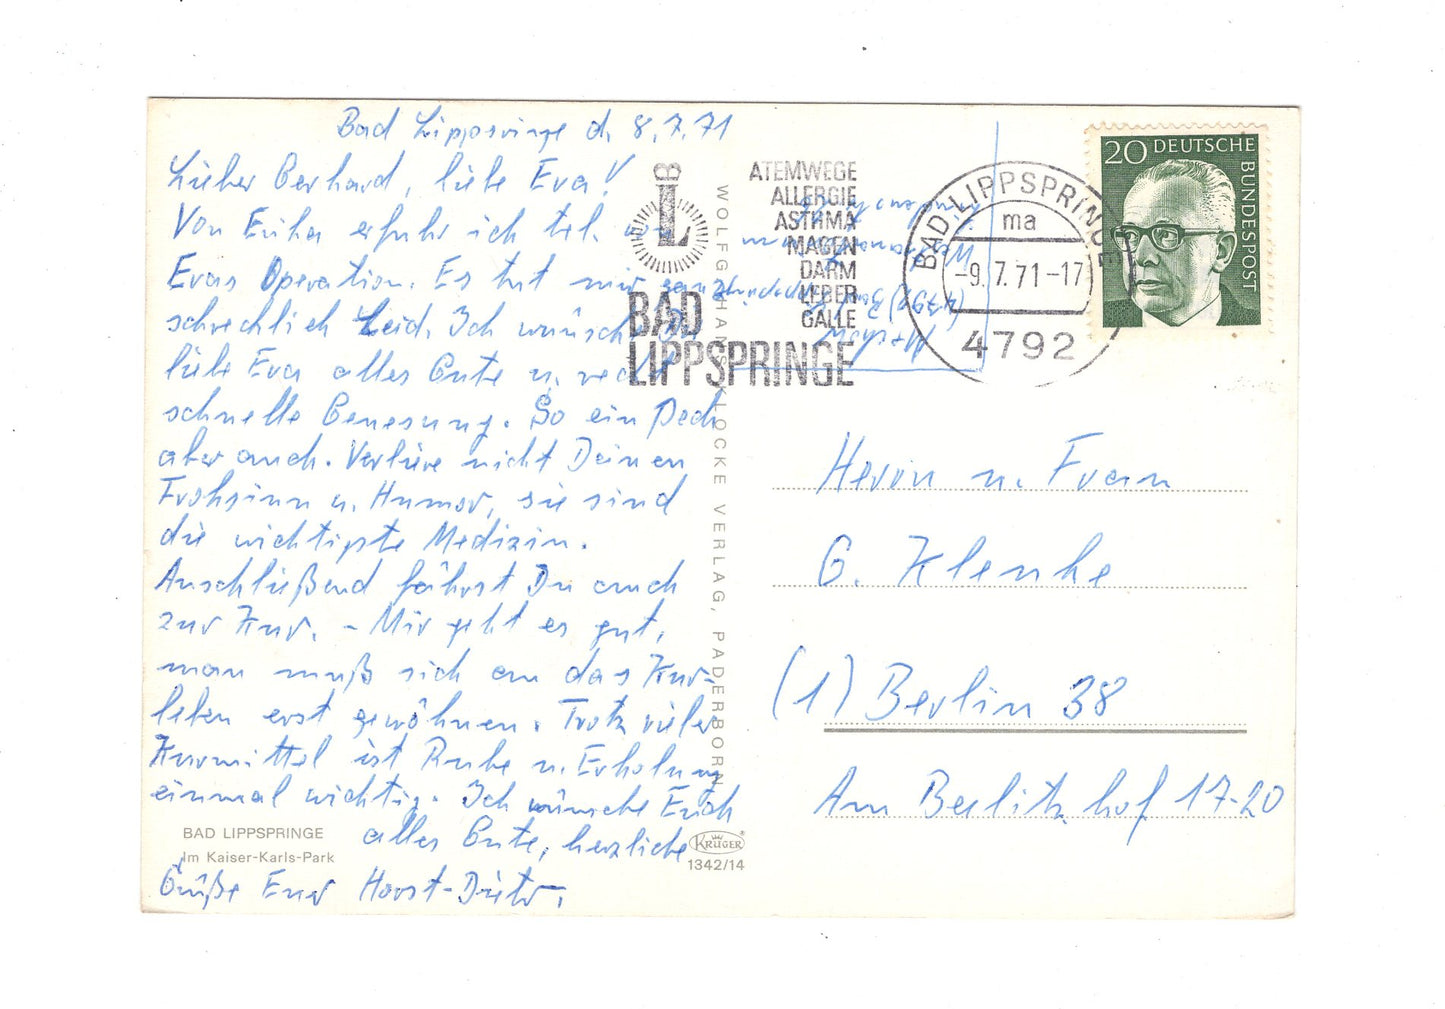 Bad Lippspringe d. 8.7.71
Lieber Gerhard, liebe Eva!
Von Erika erfuhr ich tel. von
Evas Operation. Es tut mir ganz
schrecklich Leid. Ich wünsche Dir
liebe Eva alles Gute u. recht
schnelle Genesung. So ein Pech
aber auch. Verliere nicht Deinen
Frohsinn u. Humor, sie sind
die wichtigste Medizin.
Anschließend fährst Du auch
zur Kur. - Mir geht es gut,
man muß sich an das Kur-
leben erst gewöhnen. Trotz vieler
Kurmittel ist Ruhe u. Erholung
einmal wichtig. Ich wünsche Euch
alles Gute, herzliche
Grüße Euer Horst-Dieter.
BAD LIPPSPRINGE
Im Kaiser-Karls-Park
KRÜGER
1342/14
WOLFGANG HANS KLOCKE VERLAG, PADERBORN
LB
ATEMWEGE
ALLERGIE
ASTHMA
MAGEN
DARM
LEBER
GALLE
BAD
LIPPSPRINGE
BAD LIPPSPRINGE
ma
-9.7.71-17
4792
20 DEUTSCHE
BUNDESPOST
(4792) Bad Lippspringe
Herrn u. Frau
G. Klenke
(1) Berlin 38
Am Beelitzhof 17-20